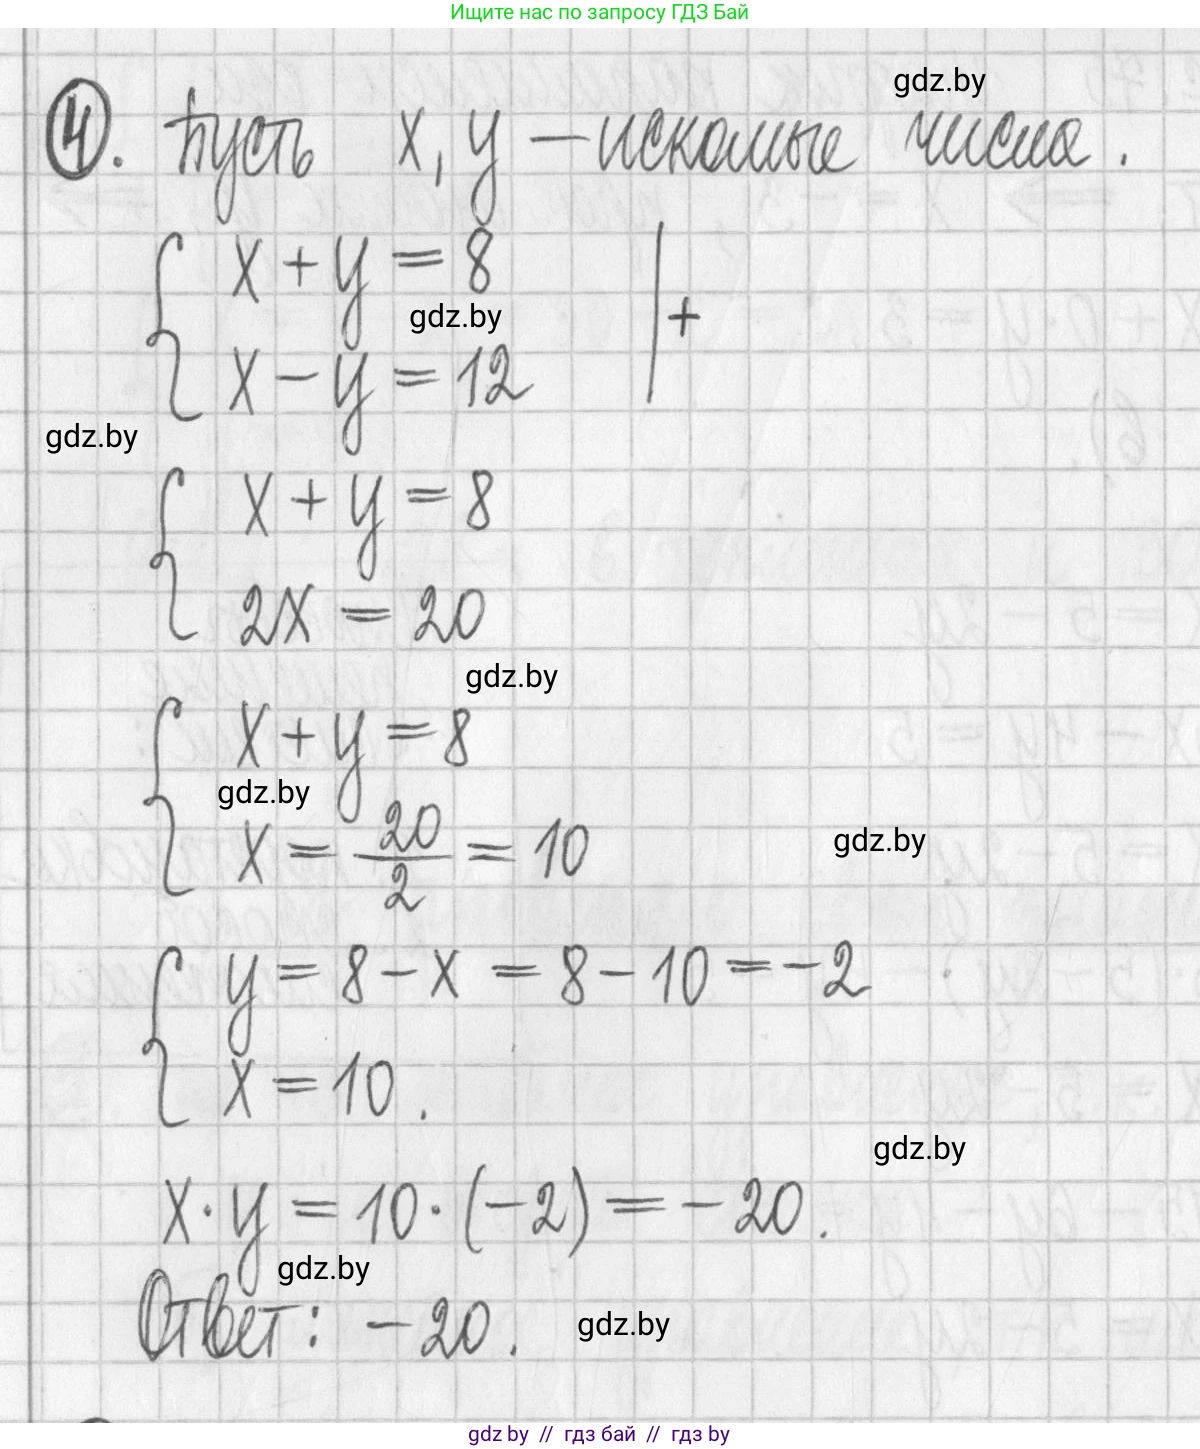 Ищите нас по запросу ГДЗ Бай
gdz.by
4. Пусть x, y — искомые числа.
{ x + y = 8
gdz.by
| +
x − y = 12
gdz.by
{ x + y = 8
2x = 20
gdz.by
{ x + y = 8
gdz.by
x = 20/2 = 10
gdz.by
{ y = 8 − x = 8 − 10 = −2
x = 10.
gdz.by
x · y = 10 · (−2) = −20.
gdz.by
Ответ: −20.
gdz.by
gdz by // гдз бай // гдз by